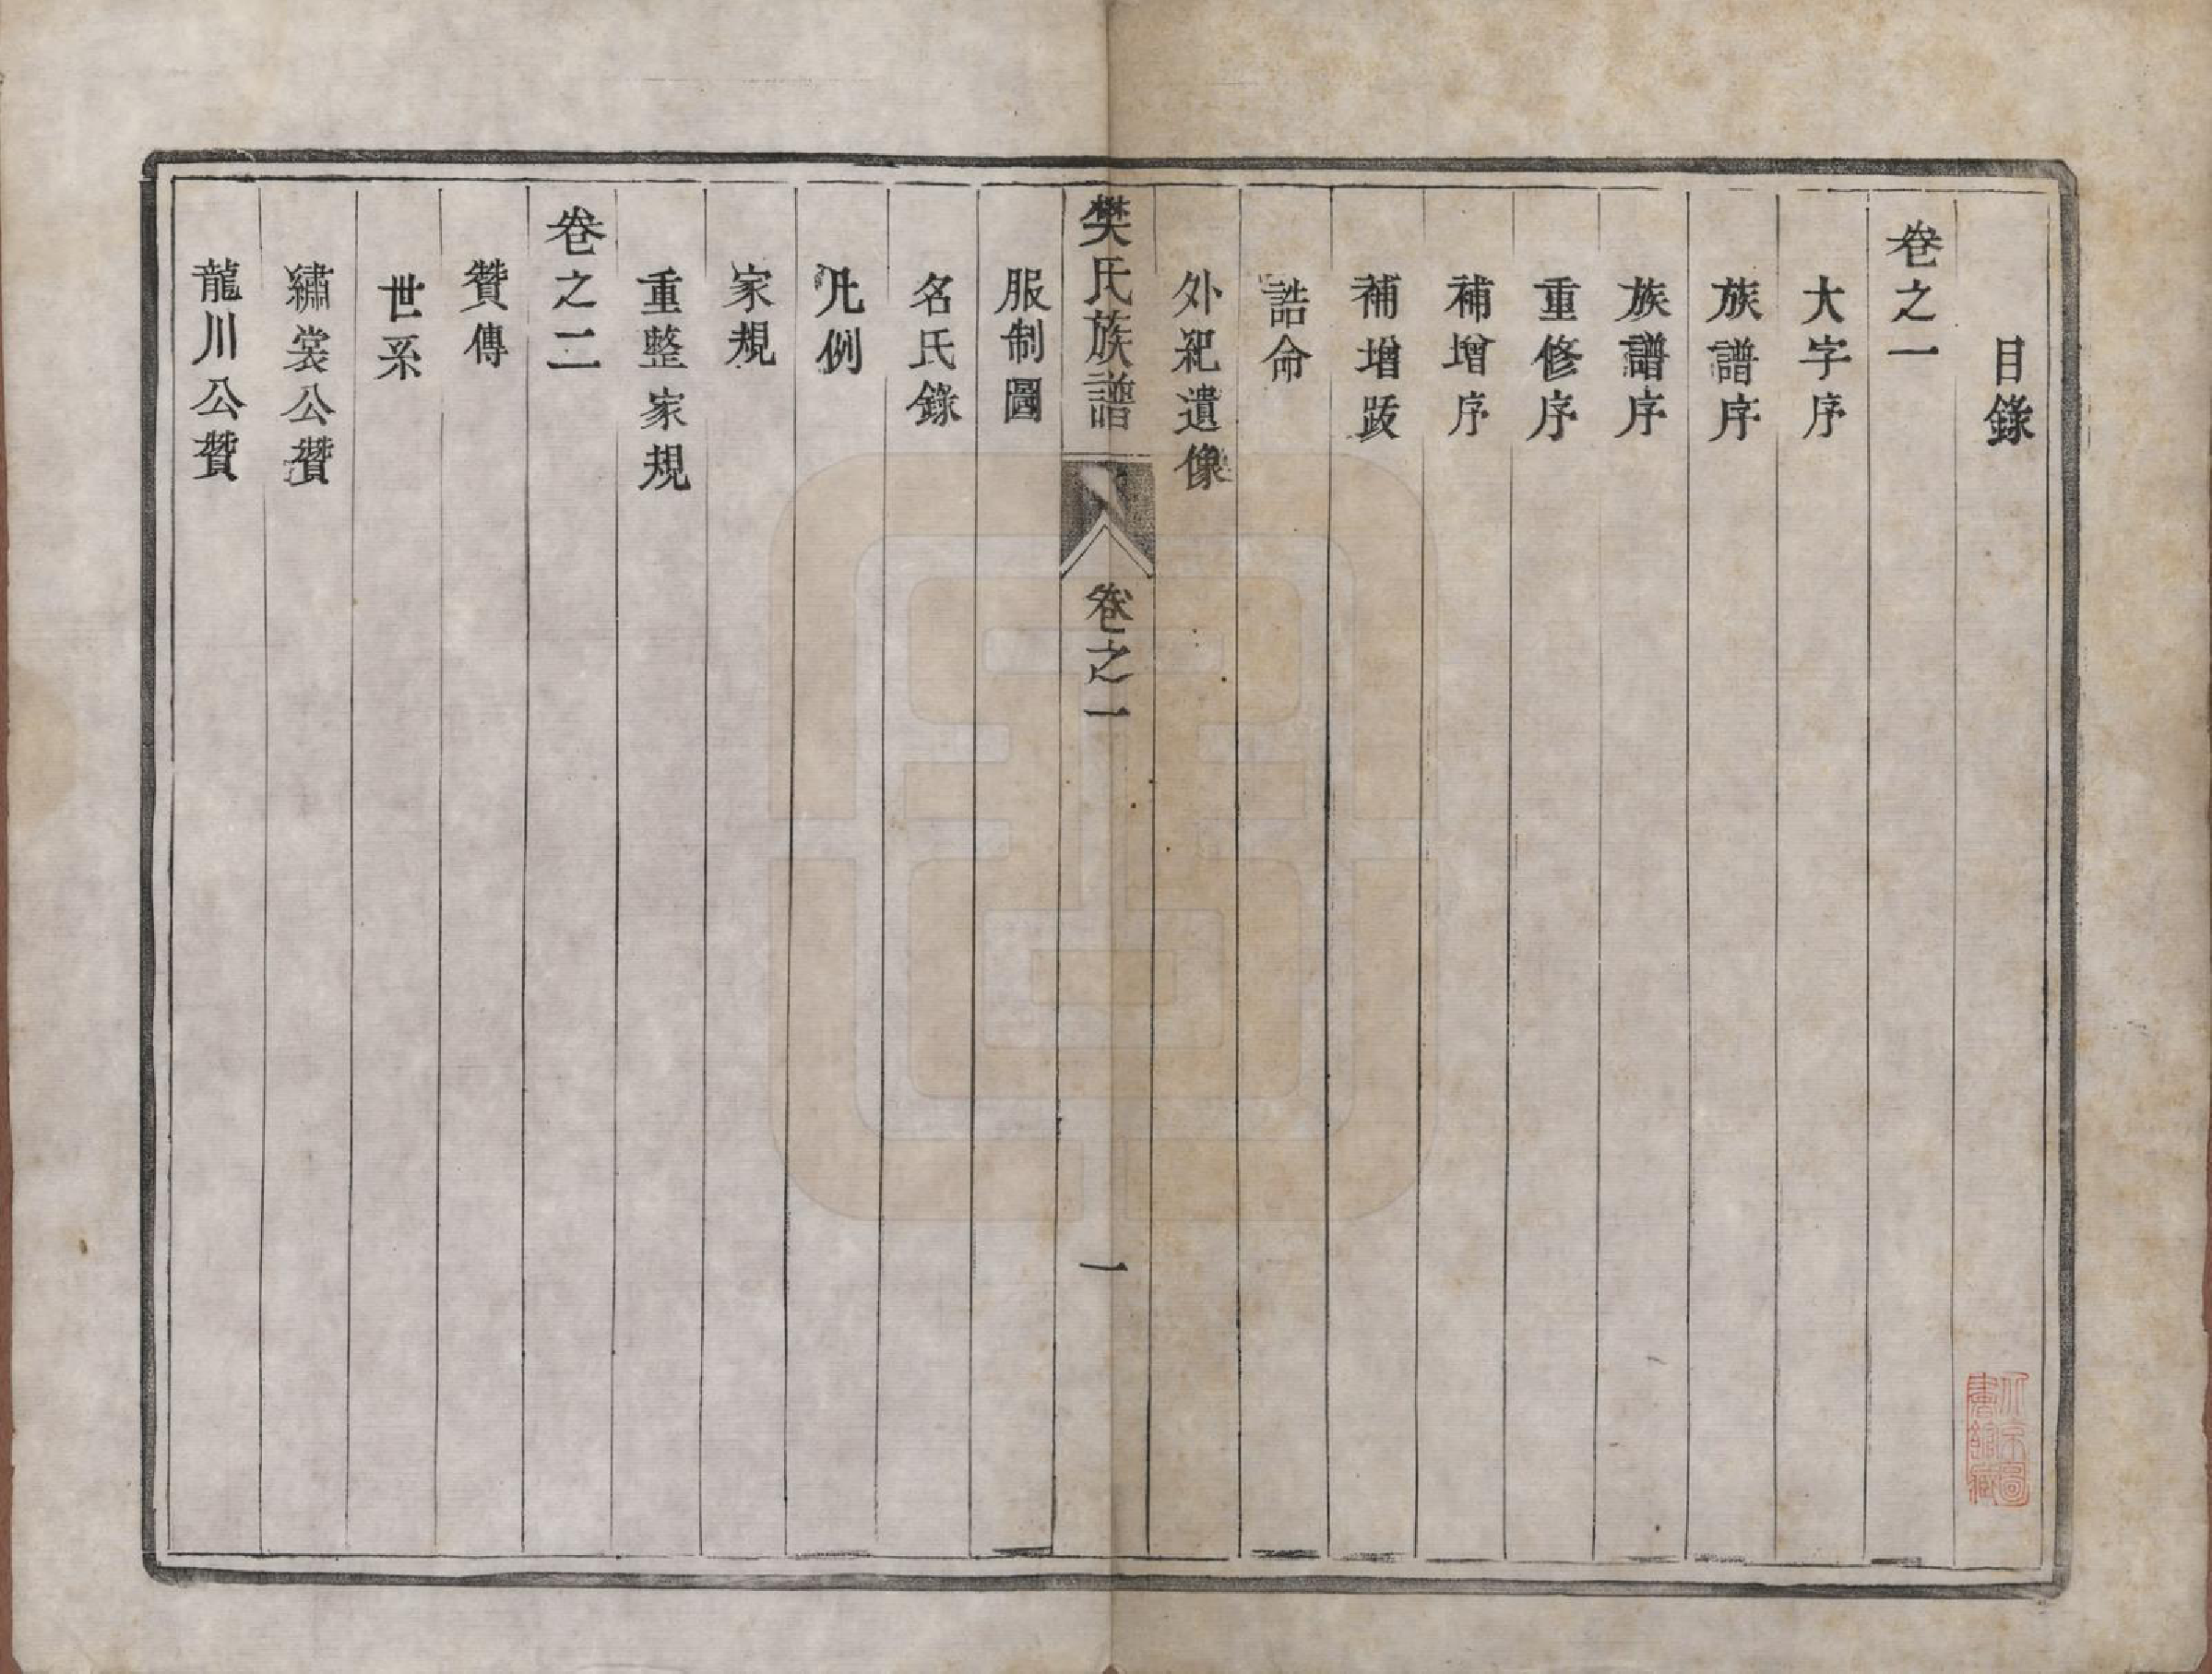 目錄
卷之一
大字序
族譜序
族譜序
重修序
補增序
補增跋
誥命
外祀遺像
樊氏族譜 卷之一 一
服制圖
名氏錄
凡例
家規
重整家規
卷之二
贊傳
世系
繡裳公贊
龍川公贊
北京圖
書館藏